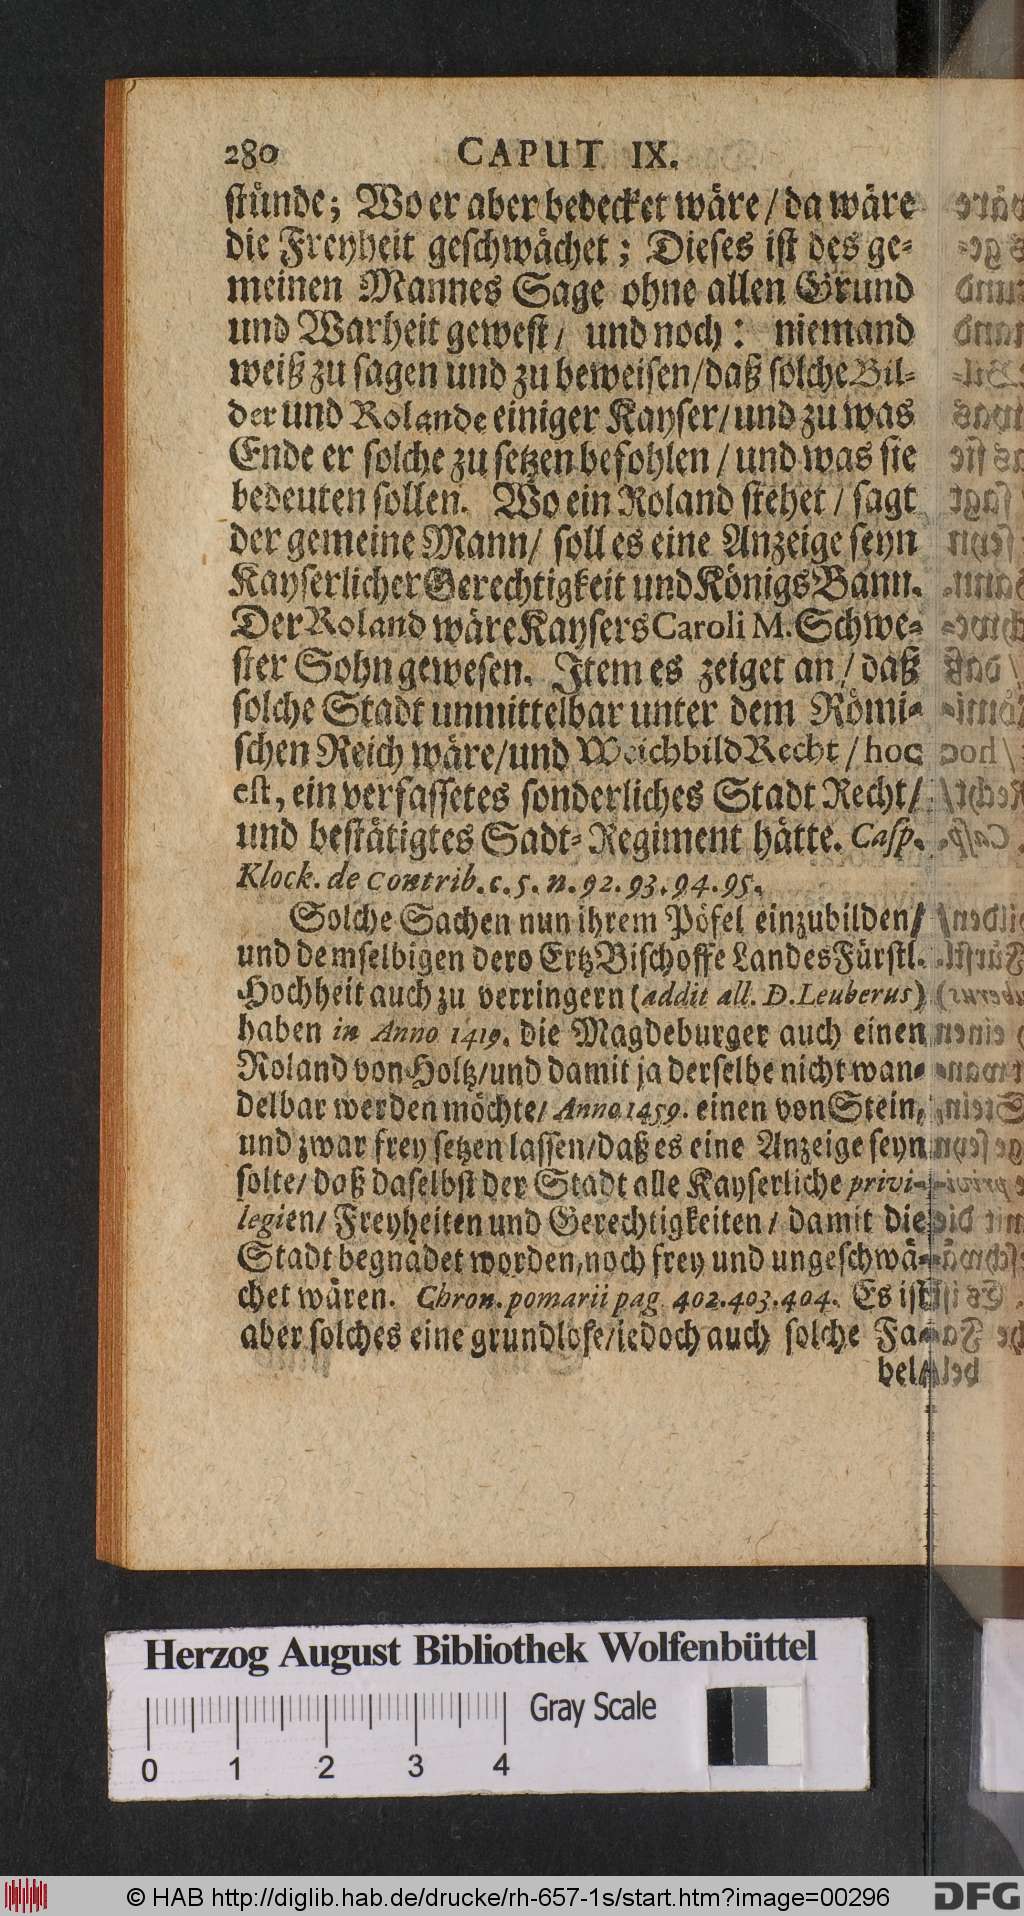 280 CAPUT IX.
stünde; Wo er aber bedecket wäre / da wäre
die Freyheit geschwächet; Dieses ist des ge-
meinen Mannes Sage ohne allen Grund
und Warheit gewest / und noch: niemand
weiß zu sagen und zu beweisen / daß solche Bil-
der und Rolande einiger Kayser / und zu was
Ende er solche zu setzen befohlen / und was sie
bedeuten sollen. Wo ein Roland stehet / sagt
der gemeine Mann / soll es eine Anzeige seyn
Kayserlicher Gerechtigkeit und Königs Bann.
Der Roland wäre Kaysers Caroli M. Schwe-
ster Sohn gewesen. Item es zeiget an / daß
solche Stadt unmittelbar unter dem Römi-
schen Reich wäre / und Weichbild Recht / hoc
est, ein verfassetes sonderliches Stadt Recht /
und bestätigtes Sadt-Regiment hätte. Casp.
Klock. de Contrib. c. 5. n. 92. 93. 94. 95.
Solche Sachen nun ihrem Pöfel einzubilden /
und demselbigen dero Ertz Bischoffe Landes Fürstl.
Hochheit auch zu verringern (addit all. D. Leuberus)
haben in Anno 1419. die Magdeburger auch einen
Roland von Holtz / und damit ja derselbe nicht wan-
delbar werden möchte / Anno 1459. einen von Stein,
und zwar frey setzen lassen / daß es eine Anzeige seyn
solte / daß daselbst der Stadt alle Kayserliche privi-
legien / Freyheiten und Gerechtigkeiten / damit die
Stadt begnadet worden, noch frey und ungeschwä-
chet wären. Chron. pomarii pag. 402. 403. 404. Es ist
aber solches eine grundlose / iedoch auch solche Fa-
bel /
Herzog August Bibliothek Wolfenbüttel
Gray Scale
0 1 2 3 4
© HAB http://diglib.hab.de/drucke/rh-657-1s/start.htm?image=00296 DFG